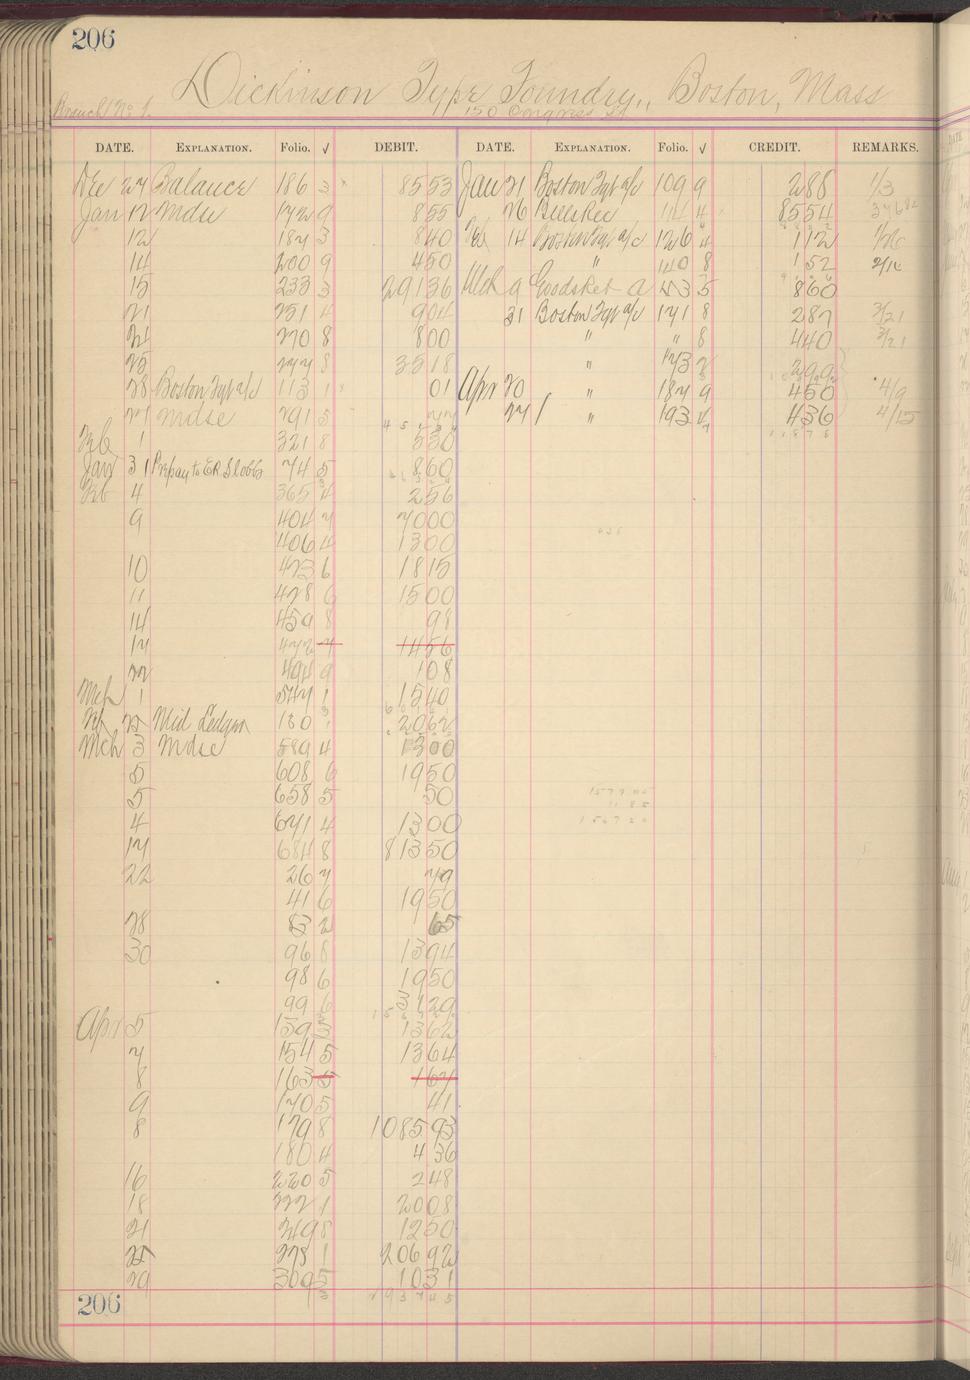 206
Dickinson Type Foundry,, Boston, Mass
Branch No 1.
150 Congress St
DATE. EXPLANATION. Folio. √ DEBIT. DATE. EXPLANATION. Folio. √ CREDIT. REMARKS.
Dec 27 Balance 186 3 85 53 Jan 21 Boston Typ a/c 109 9 2 88 1/3
Jan 12 Mdse 172 9 8 55 26 Bills Rec 114 4 85 54
12 187 3 8 40 Feb 14 Boston Typ a/c 126 4 1 12 1/26
14 200 9 4 50 " 140 8 1 52 2/16
15 233 3 291 36 Mch 9 153 5 8 60
21 251 4 9 04 31 Boston Typ a/c 171 8 2 87 3/21
24 270 8 8 00 " " 8 4 40 3/21
25 277 8 35 18 " 173 2 2 99
28 Boston Typ a/c 113 1 01 Apr 20 " 187 9 4 50 4/9
27 Mdse 291 5 77 27 " 193 4 36 4/15
Feb 1 321 8 5 30
Jan 31 Prepay to E.R. Slobbs 74 5 8 60
Feb 4 365 4 2 56
9 404 7 70 00
406 4 13 00
10 423 6 18 15
11 428 6 15 00
14 459 8 98
17 472 7 14 56
22 494 9 1 08
Mch 1 547 1 15 40
Feb 25 Mid Ledger 180 20 62
Mch 3 Mdse 589 4 13 00
5 608 6 19 50
5 658 5 50
4 671 4 13 00
17 684 8 813 50
22 26 7 79
41 6 19 50
28 83 2 65
30 96 8 13 94
98 6 19 50
99 6 31 29
Apr 5 139 5 13 62
7 154 5 13 64
8 163 5 1 67
9 170 5 41
8 179 8 1085 93
180 4 4 36
16 220 5 2 48
18 222 1 20 08
21 249 8 12 50
25 278 1 206 92
29 309 5 10 31
206